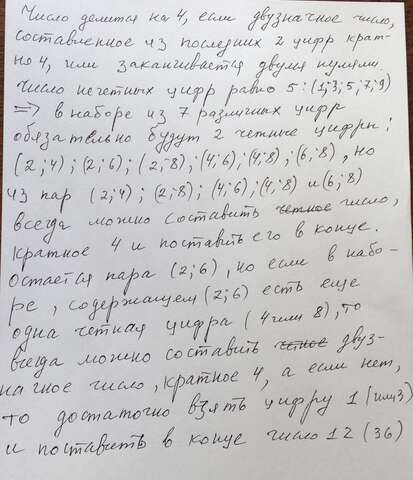 Число делится на 4, если двузначное число,
составленное из последних 2 цифр крат-
но 4, или заканчивается двумя нулями
Число нечетных цифр равно 5: (1;3;5;7;9)
=> в наборе из 7 различных цифр
обязательно будут 2 четные цифры:
(2;4); (2;6); (2;8); (4;6), (4;8); (6;8), но
из пар (2;4); (2;8); (4;6), (4;8) и (6;8)
всегда можно составить четное число,
кратное 4 и поставить его в конце.
Остается пара (2;6), но если в набо-
ре, содержащем (2;6) есть еще
одна четная цифра (4 или 8), то
всегда можно составить четное двуз-
начное число, кратное 4, а если нет,
то достаточно взять цифру 1 (или 3)
и поставить в конце число 12 (36)